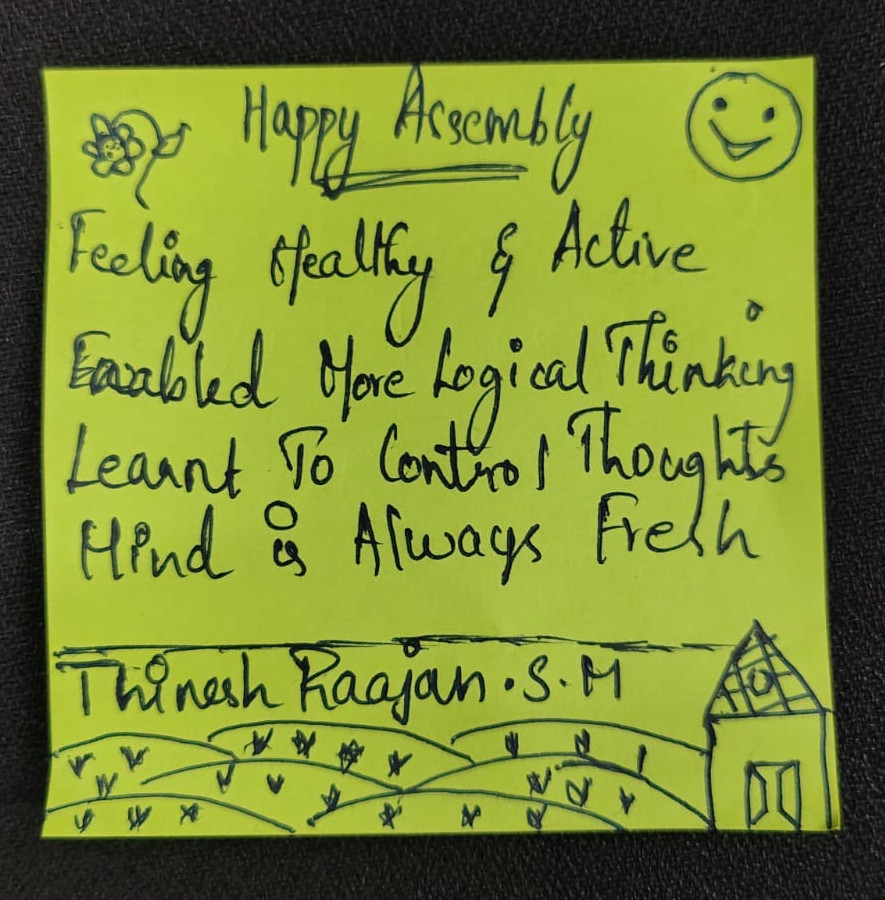 Happy Assembly
Feeling Healthy & Active
Enabled More Logical Thinking
Learnt To Control Thoughts
Mind is Always Fresh
Thinesh Raajan.S.M